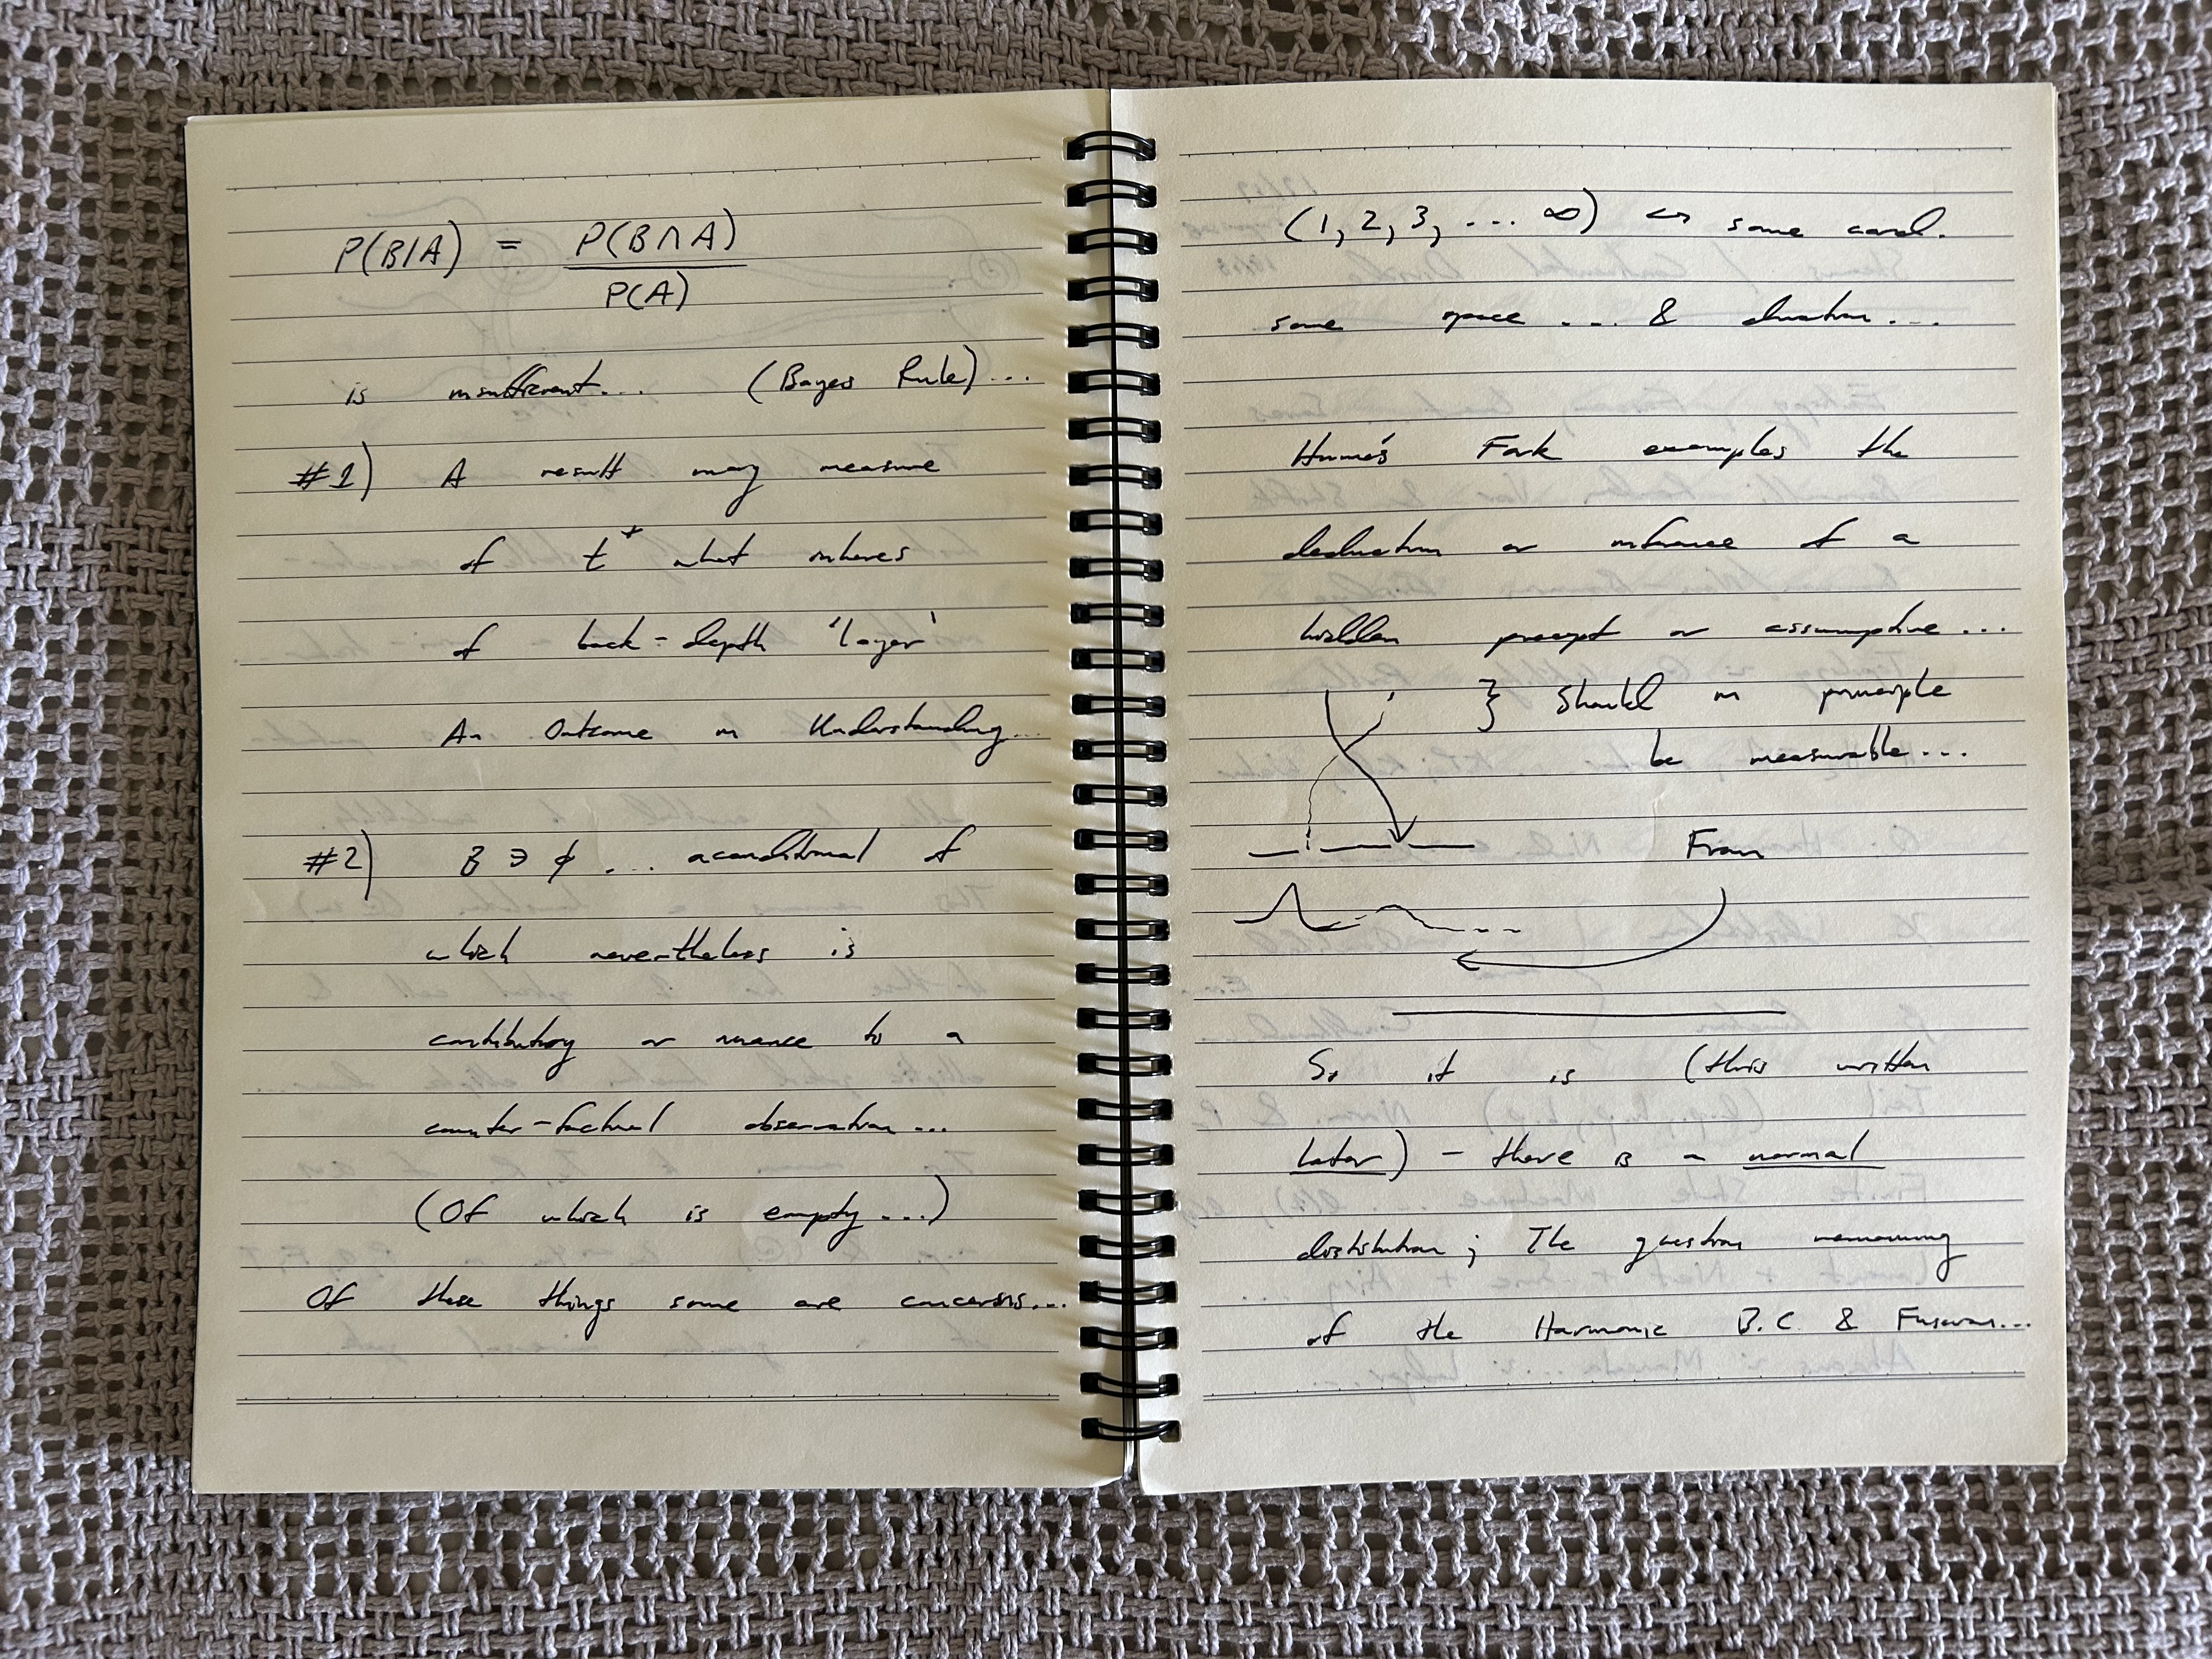 P(B|A) = P(B∩A)
P(A)
is insufficient... (Bayes Rule)...
#1) A result may measure
of t⁺ what inheres
of back-depth 'layer'
An Outcome in Understanding...
#2) B ∋ ϕ ... aconditional of
which nevertheless is
contributory or nuance to a
counter-factual observation...
(Of which is empty...)
Of these things some are concerns...
(1, 2, 3, ... ∞) ↔ some card.
some space ... & duration...
Hume's Fork examples the
deduction or inference of a
hidden precept or assumptive...
} Should in principle
be measurable...
From
So it is (this written
later) - there is a normal
distribution; The question remaining
of the Harmonic B.C. & Fusion...